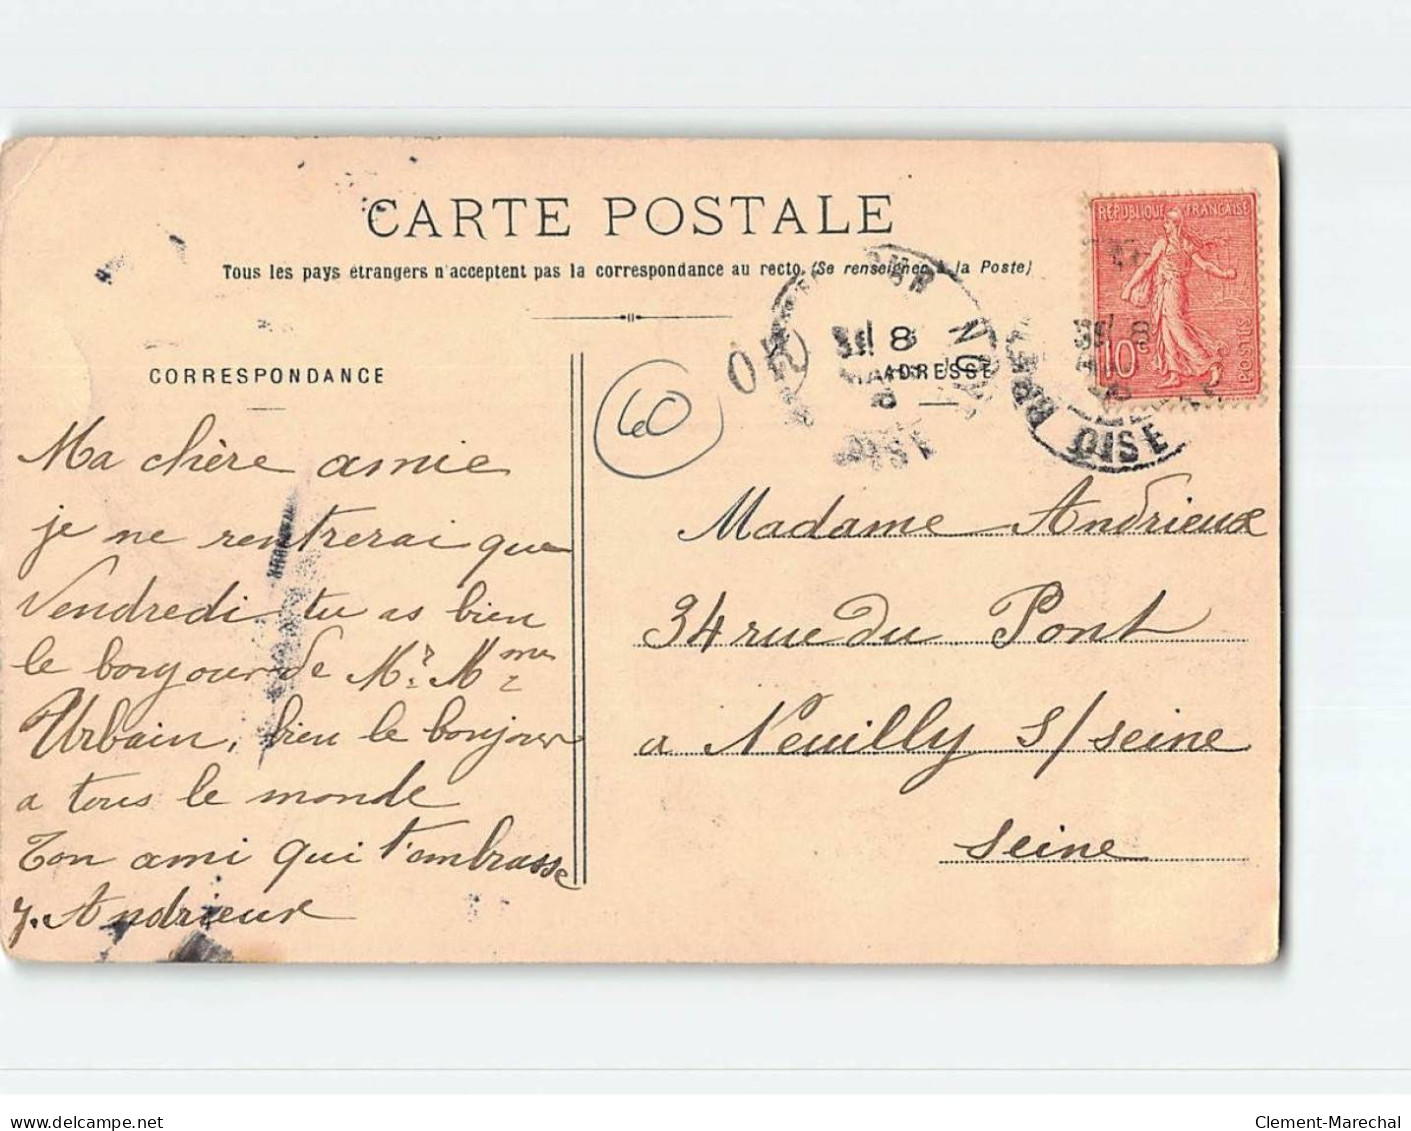 CARTE POSTALE
Tous les pays étrangers n'acceptent pas la correspondance au recto. (Se renseigner à la Poste)
CORRESPONDANCE
ADRESSE
RÉPUBLIQUE FRANÇAISE
10c
POSTES
8
OISE
OISE
60
Ma chère amie
je ne rentrerai que
Vendredi tu as bien
le bonjour de Mr. Mme
Urbain, bien le bonjour
a tous le monde
Ton ami qui t'embrasse
J. Andrieux
Madame Andrieux
34 rue du Pont
a Neuilly S/seine
Seine
Clement-Marechal